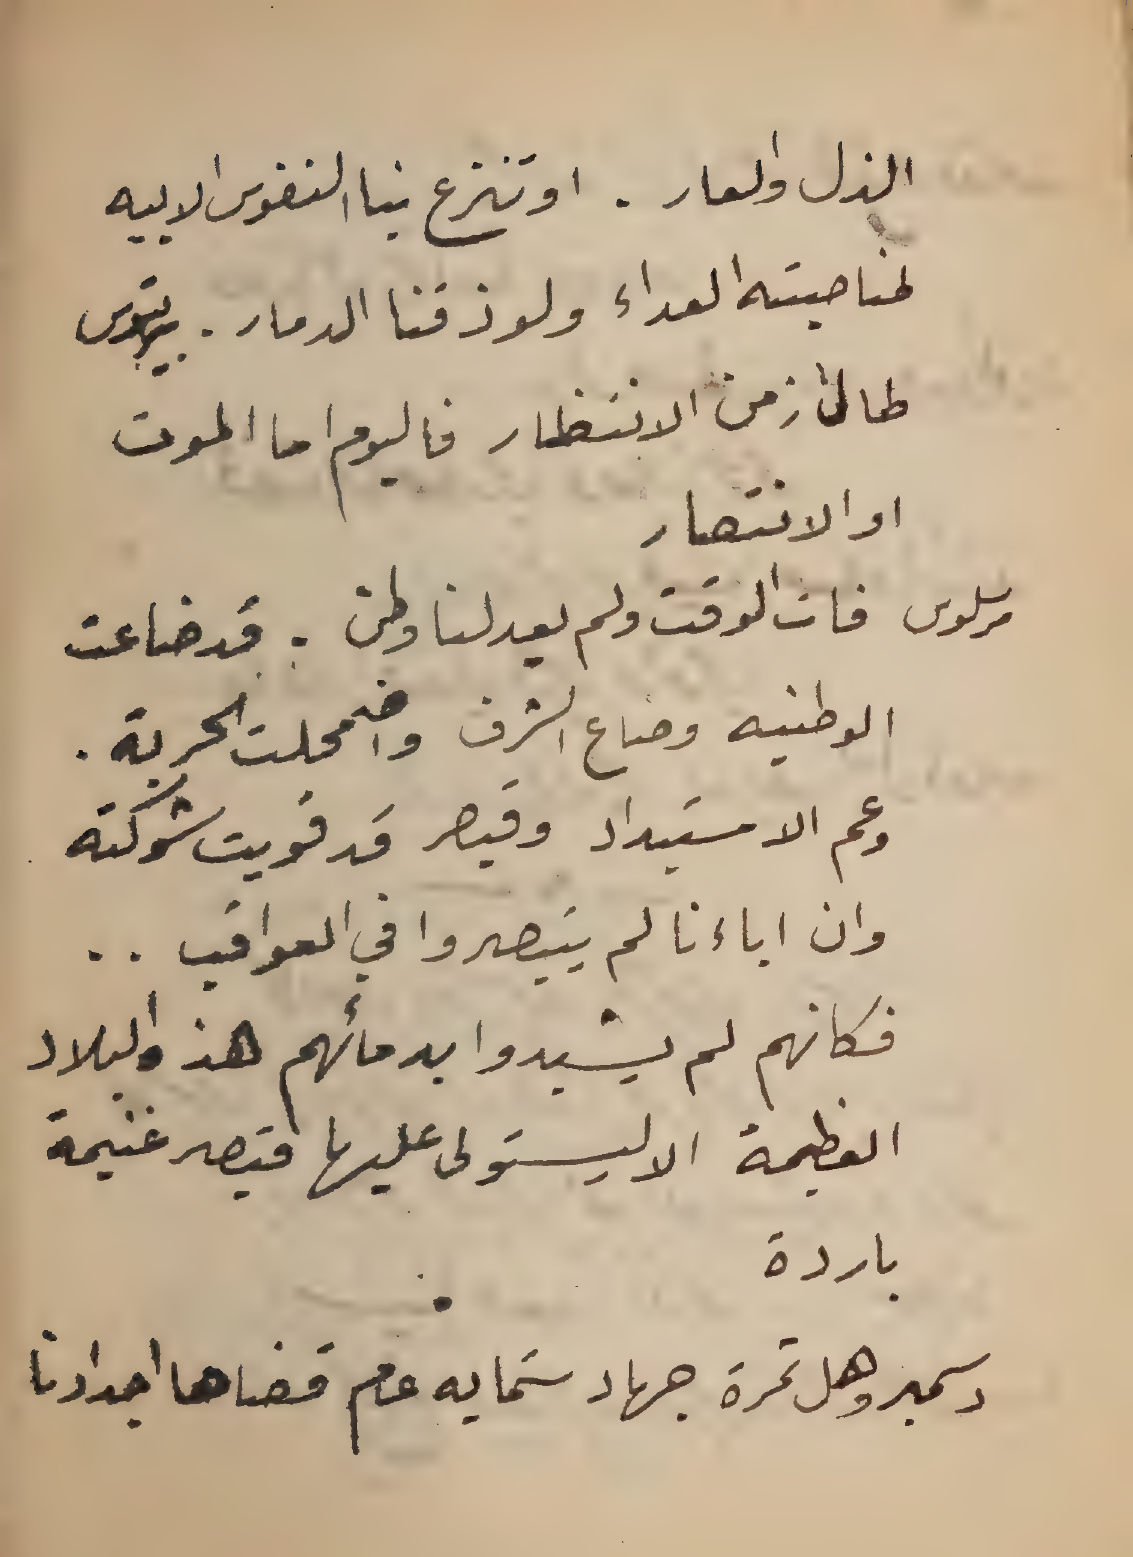 الذل والعار . او تنزع بنا النفوس الابيه
لمناصبته العداء ولو ذقنا الدمار .
طال زمن الانتظار فاليوم اما الموت
او الانتصار
مرسلوس فات الوقت ولم يعد لنا وطن . قد ضاعت
الوطنيه وضاع الشرف واضمحلت الحرية .
وعم الاستبداد وقيصر قد قويت شوكته
وان اباءنا لم يتبصروا في العواقب . .
فكانهم لم يشيدوا بدمائهم هذه البلاد
العظيمة الا ليستولى عليها قيصر غنيمة
باردة
دسمبر وهل ثمرة جهاد ستمايه عام قضاها اجدادنا